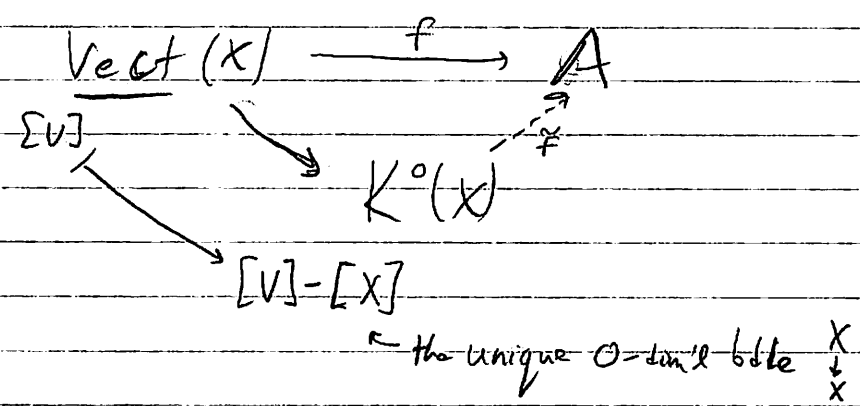 Vect(X) f A
[V] f̃
K⁰(X)
[V]-[X]
← the unique 0-dim'l bdle X
↓
X